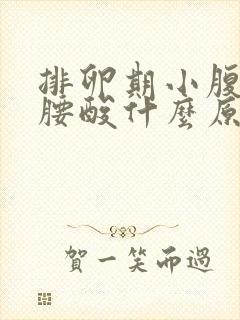 排卵期小腹
腰酸什麼原
賀一笑而過